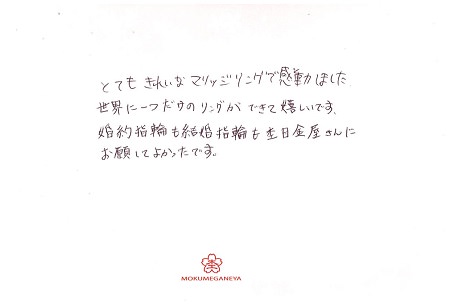 とても きれいな マリッジリングで感動しました
世界に一つだけのリングができて嬉しいです。
婚約指輪も結婚指輪も杢目金屋さんに
お願してよかったです。
MOKUMEGANEYA